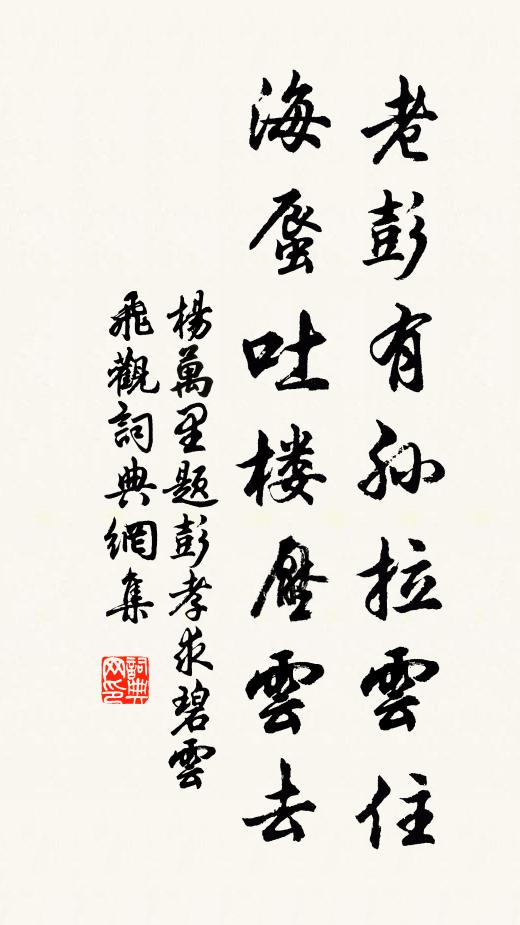 老彭有孙拉雲住
海蜃吐楼壓雲去
楊萬里题彭孝求碧雲
飛觀詞典網集
詞典网印